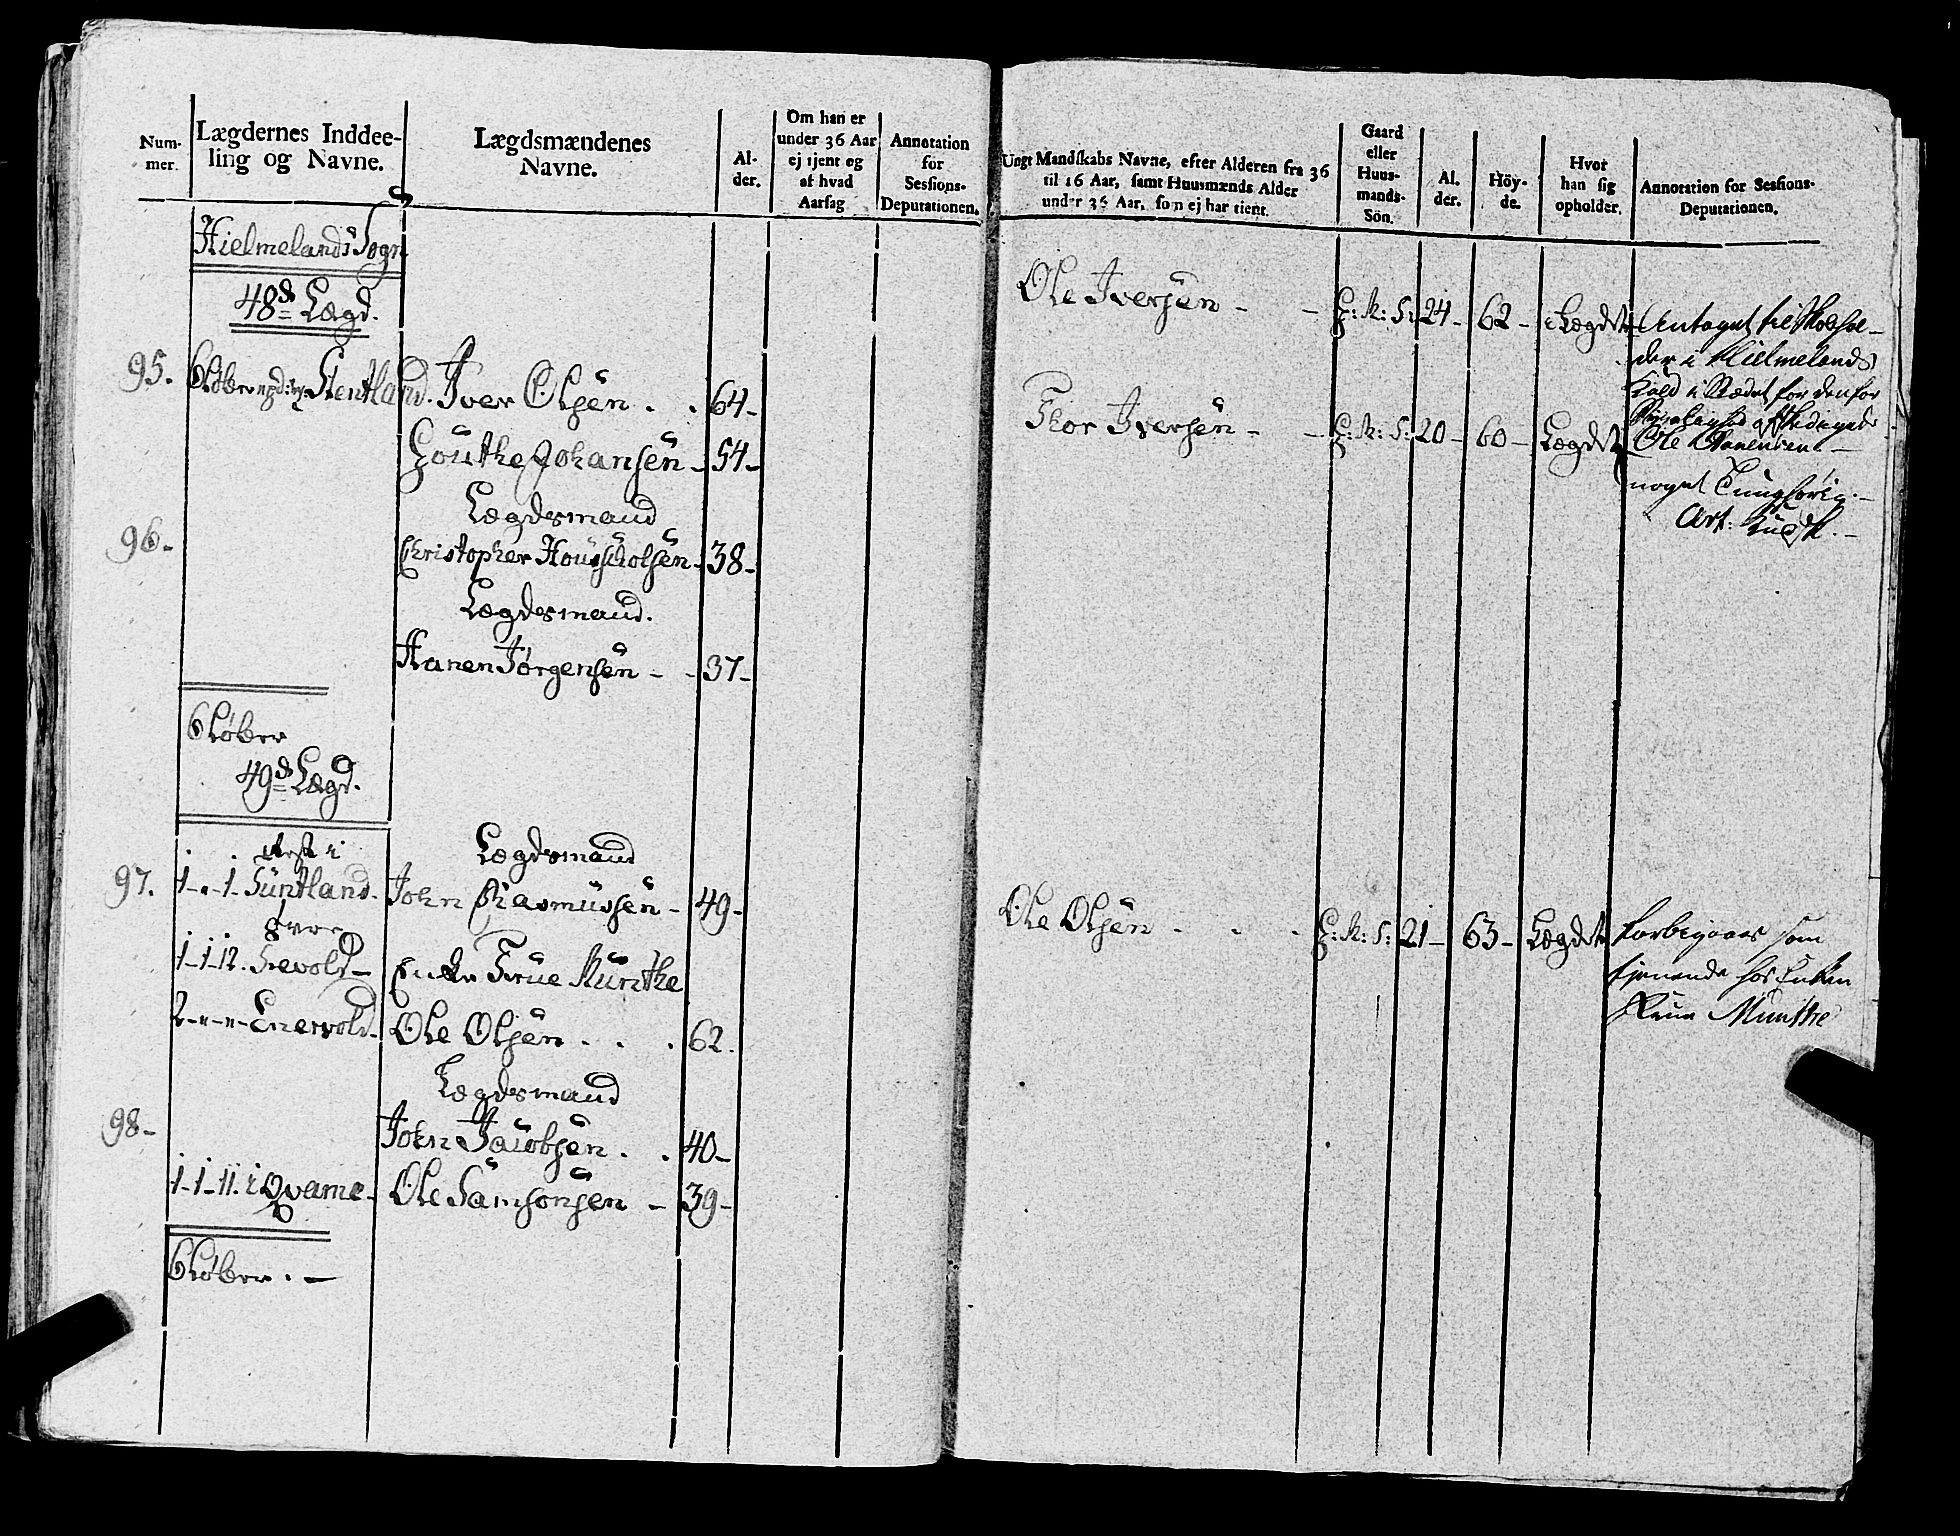 Num-
mer.
Lægdernes Inddee-
ling og Navne.
Lægdsmændenes
Navne.
Al-
der.
Om han er
under 36 Aar
ej tjent og
af hvad
Aarsag
Annotation
for
Sessions-
Deputationen.
Hielmelands Sogn
48de Lægd.
95. 6 Løber Stentland. Iver Olsen . . 64-
Gouthe Johansen - 54-
Lægdsmand
96- Christopher Housholsen - 38-
Lægdsmand.
Hanen Jørgensen - - 37-
6 Løber
49de Lægd.
Lægdsmand
97. 1-"-1. Suntland. John Rasmussen - 49-
1-1-12. Enke Frue Munthe
2-"-"- Enervold. Ole Olsen . . . 62.
Lægdsmand
98- John Jacobsen . . 40-
1-1-11. i Qvame - Ole Samsonsen - 39-
6 Løber . -
Ungt Mandskabs Navne, efter Alderen fra 36
til 16 Aar, samt Huusmænds Alder
under 36 Aar, som ej har tient.
Gaard
eller
Huus-
mands-
Sön.
Al.
der.
Höy-
de.
Hvor
han sig
opholder.
Annotation for Sessions-
Deputationen.
Ole Iversen - - G: M: S: 24- 62- i Lægdet Antaget til Skolehol-
der i Hielmelands
Kald i Stædet for den for
Ole
Thor Iversen - - G: M: S: 20- 60- Lægdet
noget Tunghørig. -
Art: Kudsk. -
Ole Olsen - - - G: M: S: 21- 63- Lægdet forbigaaes som
tjenende hos Enken
Frue Munthe